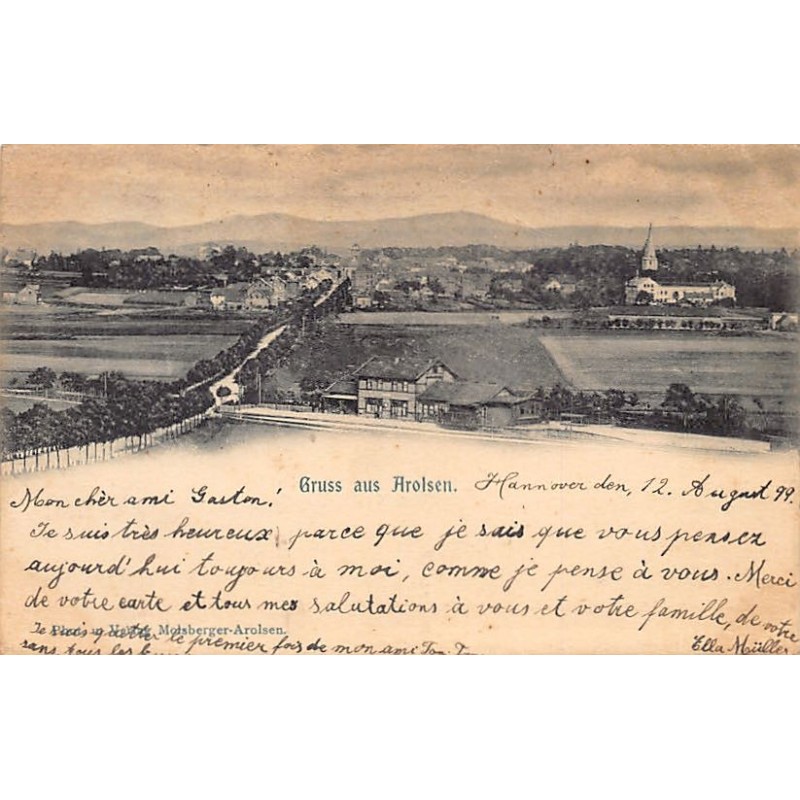 Gruss aus Arolsen. Hannover den, 12. August 99.
Mon chèr ami Gaston!
Je suis très heureux parce que je sais que vous pensez
aujourd'hui toujours à moi, comme je pense à vous. Merci
de votre carte et tous mes salutations à vous et votre famille, de votre
Ella Müller
Molsberger-Arolsen.
le premier fois de mon ami
sans tous les